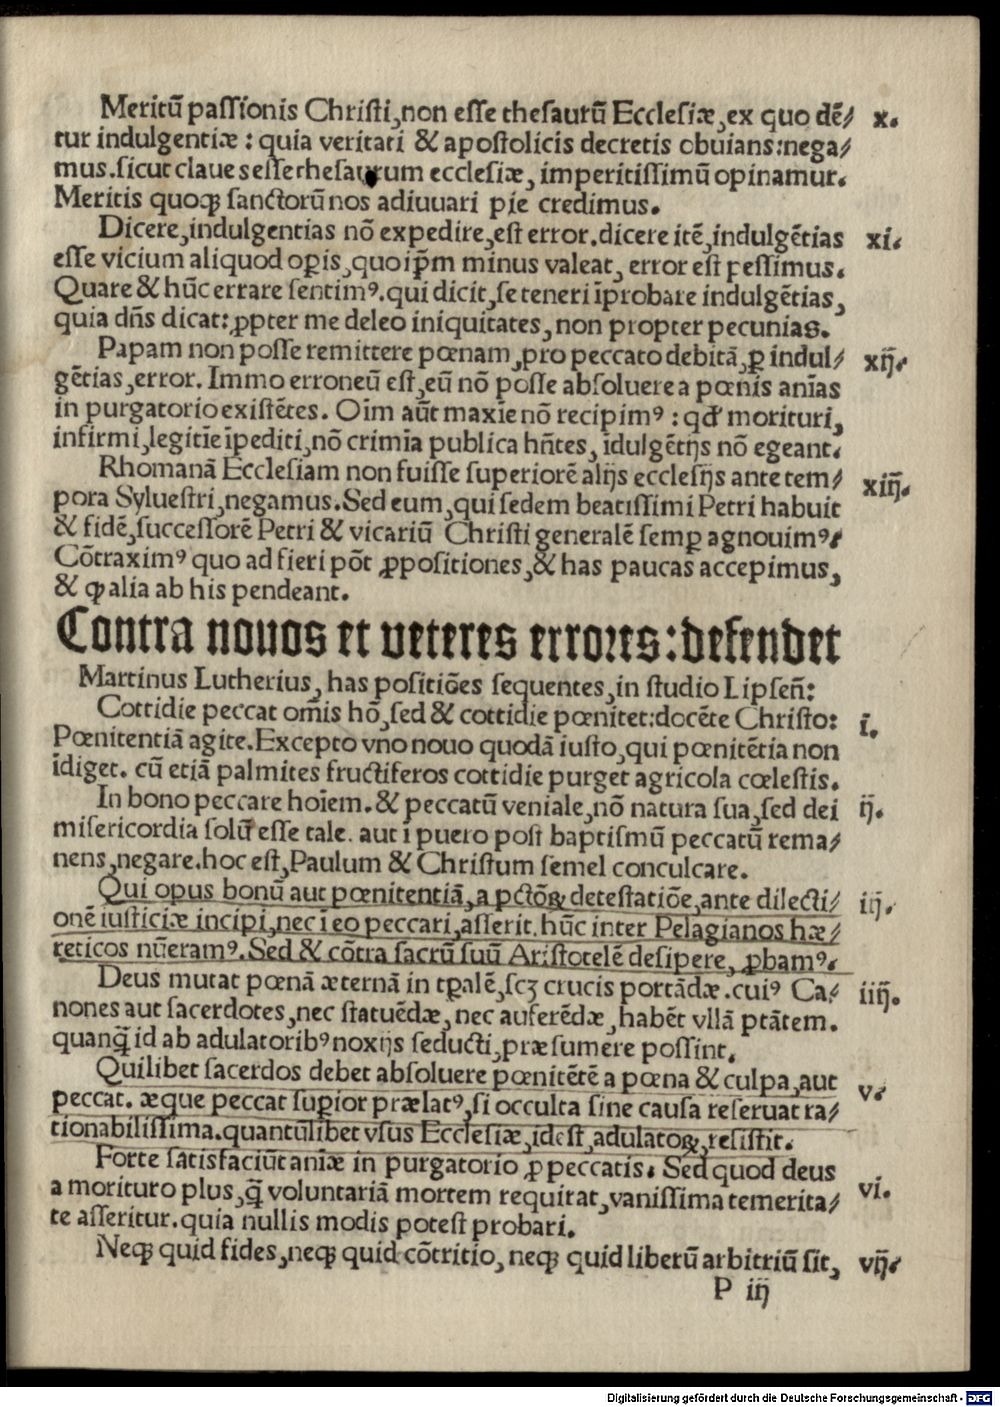 Meritū paſſionis Chriſti, non eſſe theſaurū Eccleſiæ, ex quo dē⸗ x.
tur indulgentiæ: quia veritati & apoſtolicis decretis obuians: nega⸗
mus. ſicut claues eſſe theſaurum eccleſiæ, imperitiſſimū opinamur.
Meritis quoqꝫ ſanctorū nos adiuuari pie credimus.
Dicere, indulgentias nō expedire, eſt error. dicere itē, indulgētias xi.
eſſe vicium aliquod oꝑis, quo ip̄m minus valeat, error eſt peſſimus.
Quare & hūc errare ſentimꝰ. qui dicit, ſe teneri īprobare indulgētias,
quia dn̄s dicat: ꝓpter me deleo iniquitates, non propter pecunias.
Papam non poſſe remittere pœnam, pro peccato debitā, ꝑ indul⸗ xij.
gētias, error. Immo erroneū eſt, eū nō poſſe abſoluere a pœnis anīas
in purgatorio exiſtētes. Oīm aūt maxīe nō recipimꝰ: qd' morituri,
infirmi, legitīe īpediti, nō crimīa publica hn̄tes, īdulgētijs nō egeant.
Rhomanā Eccleſiam non fuiſſe ſuperiorē alijs eccleſijs ante tem⸗ xiij.
pora Sylueſtri, negamus. Sed eum, qui ſedem beatiſſimi Petri habuit
& fidē, ſucceſſorē Petri & vicariū Chriſti generalē ſemꝑ agnouimꝰ.
Cōtraximꝰ quo ad fieri pōt ꝓpoſitiones, & has paucas accepimus,
& ꝙ alia ab his pendeant.
Contra nouos et veteres errores: defendet
Martinus Lutherius, has poſitiōes ſequentes, in ſtudio Lipſen̄:
Cottidie peccat om̄is hō, ſed & cottidie pœnitet: docēte Chriſto: i.
Pœnitentiā agite. Excepto vno nouo quodā iuſto, qui pœnitētia non
īdiget. cū etiā palmites fructiferos cottidie purget agricola cœleſtis.
In bono peccare hoīem. & peccatū veniale, nō natura ſua, ſed dei ij.
miſericordia ſolū eſſe tale. aut ī puero poſt baptiſmū peccatū rema⸗
nens, negare. hoc eſt, Paulum & Chriſtum ſemel conculcare.
Qui opus bonū aut pœnitentiā, a pctōꝝ deteſtatiōe, ante dilecti⸗ iij.
onē iuſticiæ incipi, nec ī eo peccari, aſſerit. hūc inter Pelagianos hæ⸗
reticos nūeramꝰ. Sed & cōtra ſacrū ſuū Ariſtotelē deſipere, ꝓbamꝰ.
Deus mutat pœnā æternā in tꝑalē, ſcꝫ crucis portādæ. cuiꝰ Ca⸗ iiij.
nones aut ſacerdotes, nec ſtatuēdæ, nec auferēdæ, habēt vllā ptātem.
quanq̄ id ab adulatoribꝰ noxijs ſeducti, præſumere poſſint.
Quilibet ſacerdos debet abſoluere pœnitētē a pœna & culpa, aut v.
peccat. æque peccat ſuꝑior prælatꝰ, ſi occulta ſine cauſa reſeruat ra⸗
tionabiliſſima. quantūlibet vſus Eccleſiæ, id eſt, adulatoꝝ, reſiſtit.
Forte ſatisfaciūt anīæ in purgatorio ꝓ peccatis. Sed quod deus vi.
a morituro plus, q̄ voluntariā mortem requirat, vaniſſima temerita⸗
te aſſeritur. quia nullis modis poteſt probari.
Neqꝫ quid fides, neqꝫ quid cōtritio, neqꝫ quid liberū arbitriū ſit, vij.
P iij
Digitalisierung gefördert durch die Deutsche Forschungsgemeinschaft - DFG